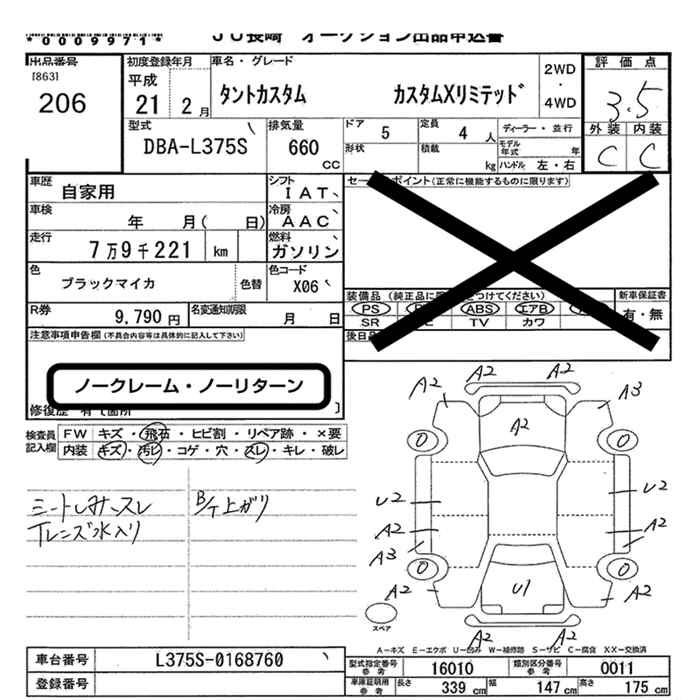 *0009971*
JU長崎 オークション出品申込書
出品番号 初度登録年月 車名・グレード 2WD・4WD 評価点
[863] 206
平成21 2月
タントカスタム カスタムXリミテッド
3.5
型式 DBA-L375S
排気量 660 CC
ドア 5 定員 4人 ディーラー・並行
外装 内装
C C
形状 積載 kg モデル年式 年
ハンドル 左・右
車歴 自家用
シフト IAT
セールスポイント(正常に機能するものに限ります)
車検 年 月( 日)
冷房 AAC
走行 7万9千221 km
燃料 ガソリン
色 ブラックマイカ 色替
色コード X06
装備品 (純正品に つけてください) 新車保証書
PS ABS エアB 有・無
SR TV カワ
R券 9,790円
名変通知期限 月 日
後日
注意事項申告欄(不具合内容等は具体的に記入して下さい)
ノークレーム・ノーリターン
修復歴 有 箇所
検査員記入欄
FW キズ・飛石・ヒビ割・リペア跡・×要
内装 キズ・汚レ・コゲ・穴・スレ・キレ・破レ
シートしみ、スレ
Tレンズ水入り
B/T上がり
A2 A2 A2 A3
A2
0 0
U2 U2
A2 A2
A3
0 0
A2 U1 A2
A2 A2
スペア
A-キズ E-エクボ U-凹み W-補修跡 S-サビ C-腐食 XX-交換済
車台番号 L375S-0168760
登録番号
型式指定番号参考 16010 類別区分番号参考 0011
車庫証明用参考 長さ 339cm 幅 147cm 高さ 175cm